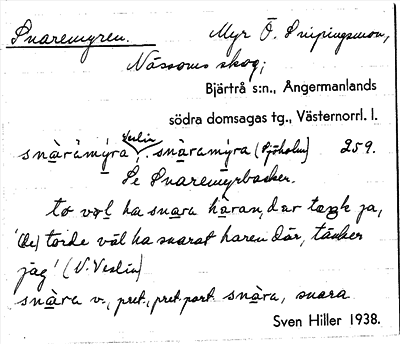 Snaremyren. Myr Ö. Snipingsmon,
Nässoms skog;
Bjärtrå s:n., Ångermanlands
södra domsagas tg., Västernorrl. l.
snàràmýra (Veslin), snàramýra (Sjöholm) 259.
Se Snaremyrbacken.
to vǝl ha snara haran, dar tǝŋk ja,
'(de) torde väl ha snarat haren där, tänker
jag' (V. Veslin)
snàra v., pret., pret. part. snàra, snara
Sven Hiller 1938.